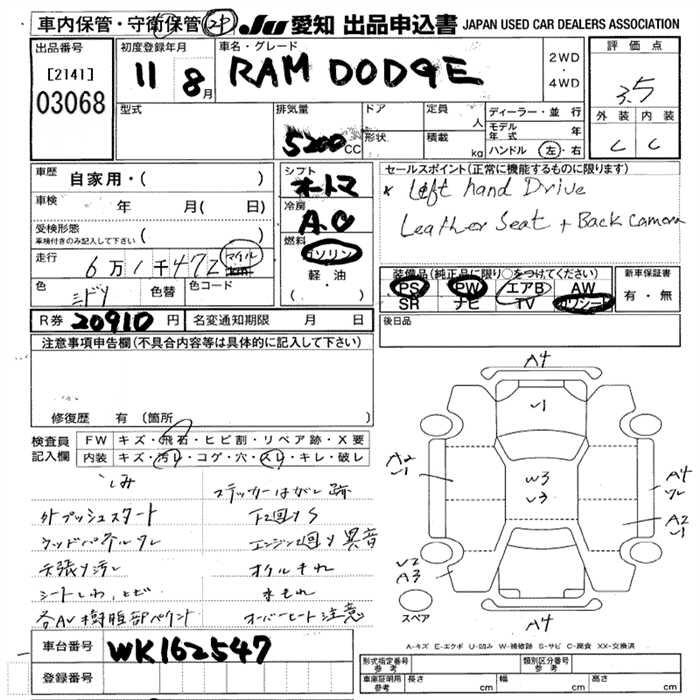 車内保管・守衛保管 JU 愛知 出品申込書 JAPAN USED CAR DEALERS ASSOCIATION
出品番号 初度登録年月 車名・グレード 2WD・4WD 評価点
[2141] 11 8月 RAM DODGE 3.5
03068 型式 排気量 5200CC ドア 定員 人 ディーラー・並行 外装 内装
形状 積載 kg モデル年式 年 C C
ハンドル 左・右
車歴 自家用・( ) シフト オートマ セールスポイント(正常に機能するものに限ります)
車検 年 月( 日) 冷房 A.C * left hand Drive
受検形態 車検付きのみ記入して下さい ( ) Leather Seat + Back camera
走行 6万1千472 マイル km 燃料 ガソリン
軽・油
( )
装備品(純正品に限り○をつけてください) 新車保証書
色 ミドリ 色替 色コード PS PW エアB AW 有・無
SR ナビ TV カワシート
R券 20910円 名変通知期限 月 日 後日品
注意事項申告欄(不具合内容等は具体的に記入して下さい)
修復歴 有 (箇所 )
検査員記入欄 FW キズ・飛石・ヒビ割・リペア跡・X要
内装 キズ・汚レ・コゲ・穴・スレ・キレ・破レ
しみ ステッカーはがし跡
外プッシュスタート 下回りS
ウッドパネルワレ エンジン回り異音
天張り汚レ オイルもれ
シートしわ、とび 水もれ
各AV樹脂部ペイント オーバーヒート注意
A4
V1
A2
V1
W3
V3
A4
ワレ
A2
V1
V2
A3
スペア
A4
車台番号 WK162547
登録番号
A-キズ E-エクボ U-凹み W-補修跡 S-サビ C-腐食 XX-交換済
形式指定番号 参考 類別区分番号 参考
車庫証明用 参考 長さ cm 幅 cm 高さ cm